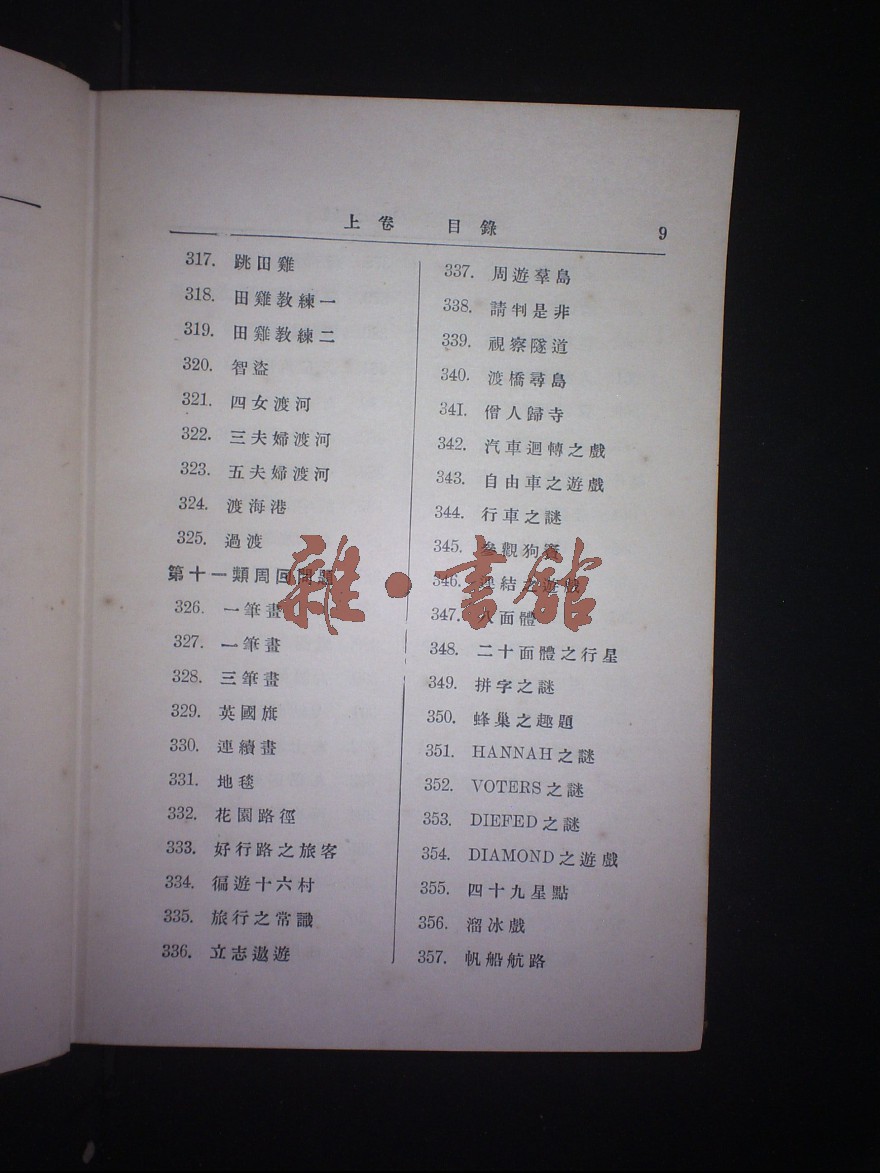 上卷 目錄 9
317. 跳田雞
318. 田雞教練一
319. 田雞教練二
320. 智盜
321. 四女渡河
322. 三夫婦渡河
323. 五夫婦渡河
324. 渡海港
325. 過渡
第十一類周回問題
326. 一筆畫
327. 一筆畫
328. 三筆畫
329. 英國旗
330. 連續畫
331. 地毯
332. 花園路徑
333. 好行路之旅客
334. 徧遊十六村
335. 旅行之常識
336. 立志遨遊
337. 周遊羣島
338. 請判是非
339. 視察隧道
340. 渡橋尋島
341. 僧人歸寺
342. 汽車迴轉之戲
343. 自由車之遊戲
344. 行車之謎
345. 參觀狗賽
346. 連結之遊戲
347. 八面體
348. 二十面體之行星
349. 拼字之謎
350. 蜂巢之趣題
351. HANNAH之謎
352. VOTERS之謎
353. DIEFED之謎
354. DIAMOND之遊戲
355. 四十九星點
356. 溜冰戲
357. 帆船航路
雜·書館